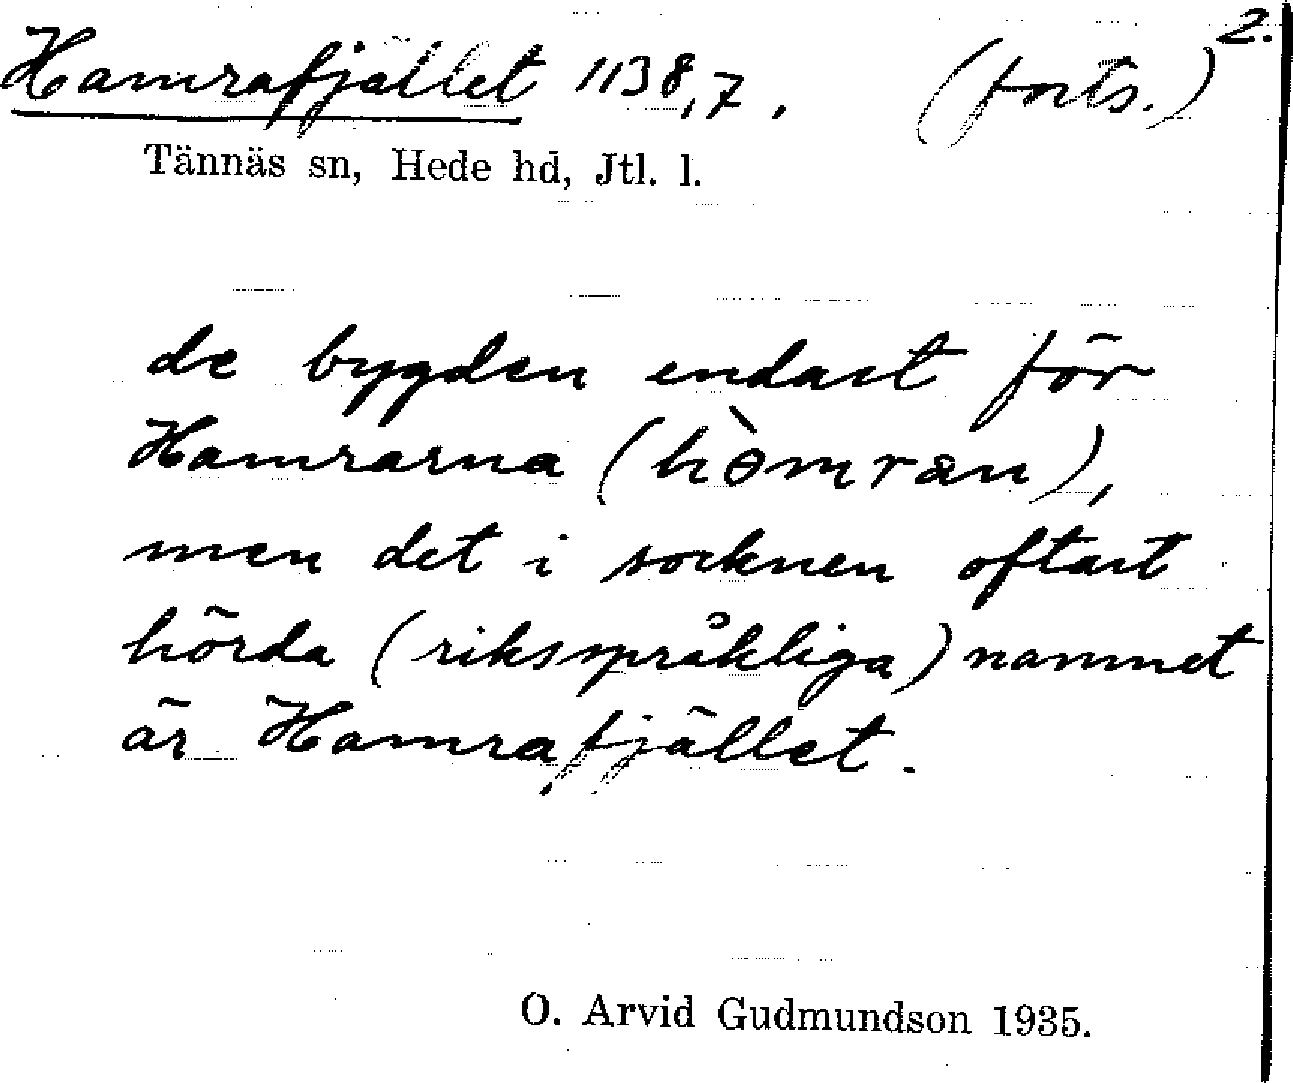 2.
Hamrafjället 1138,7. (forts.)
Tännäs sn, Hede hd, Jtl. l.
de bygden endast för
Hamrarna (hòmran),
men det i socknen oftast
hörda (riksspråkliga) namnet
är Hamrafjället.
O. Arvid Gudmundson 1935.